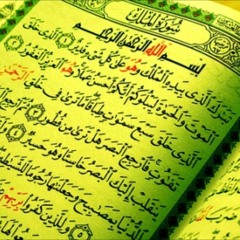 سُورَةُ الْمُلْكِ
بِسْمِ اللَّهِ الرَّحْمَٰنِ الرَّحِيمِ
تَبَارَكَ الَّذِي بِيَدِهِ الْمُلْكُ وَهُوَ عَلَىٰ كُلِّ شَيْءٍ قَدِيرٌ ١ الَّذِي خَلَقَ
الْمَوْتَ وَالْحَيَاةَ لِيَبْلُوَكُمْ أَيُّكُمْ أَحْسَنُ عَمَلًا وَهُوَ الْعَزِيزُ الْغَفُورُ
الَّذِي خَلَقَ سَبْعَ سَمَاوَاتٍ طِبَاقًا مَا تَرَىٰ فِي خَلْقِ الرَّحْمَٰنِ
تَفَاوُتٍ فَارْجِعِ الْبَصَرَ هَلْ تَرَىٰ مِنْ فُطُورٍ ٣ ثُمَّ ارْجِعِ
يَنْقَلِبْ إِلَيْكَ الْبَصَرُ خَاسِئًا وَهُوَ حَسِيرٌ
الدُّنْيَا بِمَصَابِيحَ وَجَعَلْنَاهَا رُجُومًا لِلشَّيَاطِينِ
٥ وَلِلَّذِينَ كَفَرُوا بِرَبِّهِمْ